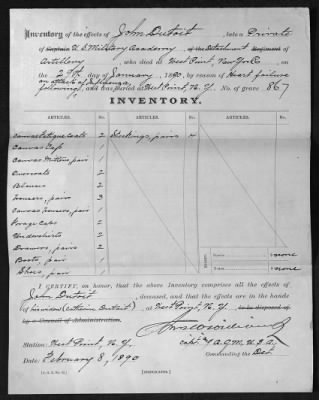 Inventory of the effects of John Dutoit, late a Private
of Captain U.S. Military Academy of the Detachment Regiment of
Artillery who died at West Point, New York, on
the 29th day of January, 1890, by reason of Heart failure
following an attack of Influenza, and was buried at West Point, N.Y. No. of grave 867
INVENTORY.
ARTICLES. NO. ARTICLES. NO. ARTICLES. NO.
Canvas Fatigue Coats 2 Stockings, pairs
Canvas Cap 1
Canvas Mittens, pair 1
Overcoats 2
Blouses 2
Trousers, pairs 3
Canvas Trousers, pair 1
Forage Caps 2
Undershirts 2
Drawers, pairs 2
Boots, pair 1
Shoes, pair 1
none
none
I CERTIFY, on honor, that the above Inventory comprises all the effects of
John Dutoit, deceased, and that the effects are in the hands
of his widow (Catherine Dutoit), at West Point, N.Y. to be disposed of
by a Council of Administration.
Station: West Point, N.Y.
Date: February 8, 1890
Commanding the Det.